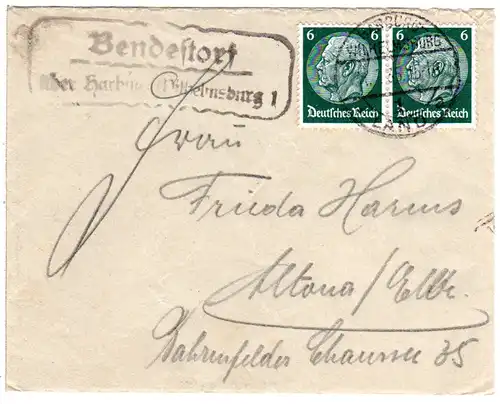 Bendestorf
über Harburg-Wilhelmsburg 1
6 6 6
Deutsches Reich Deutsches Reich
HARBURG
WILHELMSBURG
LAND
Frau
Frieda Harms
Altona/Elbe.
Bahrenfelder Chaussee 35